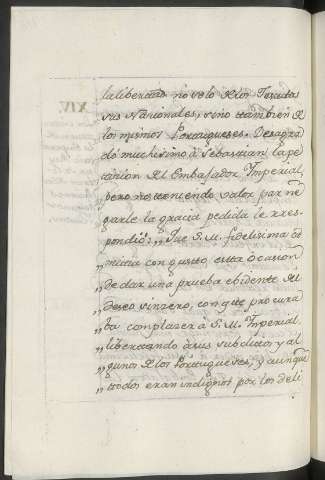 la libertad no solo de los Jesuitas
sus Nacionales, sino tambien de
los mismos Portugueses. Desagra
dó muchisimo à Sebastian la pe
ticion del Embajador Imperial,
pero no teniendo valor par ne
garle la gracia pedida le res
pondiò: „ Que S. M. fidelisima
„ con gusto esta ocasion
„ de dar una prueba ebidente del
„ deseo sinzero, con que procura
„ ba complazer à S. M. Imperial
„ libertando à sus subditos y al
„ gunos de los Portugueses, y aunque
„ todos eran indignos por los deli